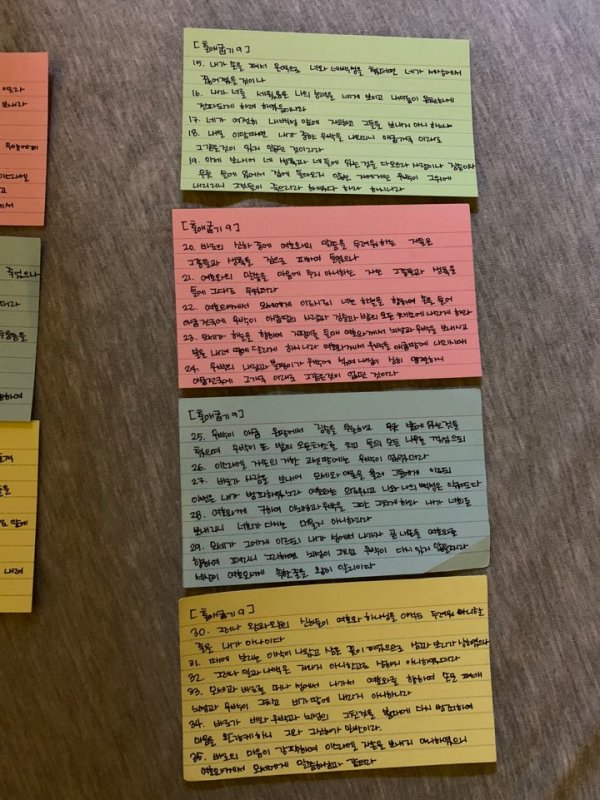 이르라
보내라
죽었으나
더라
우양을
내려
[출애굽기 9]
15. 내가 손을 펴서 온역으로 너와 네 백성을 쳤더면 네가 세상에서
끊어졌을 것이나
16. 내가 너를 세웠음은 나의 능력을 네게 보이고 내 이름이 온천하에
전파되게 하려 하였음이니라
17. 네가 여전히 내 백성 앞에 자고하고 그들을 보내지 아니하느냐
18. 내일 이맘때면 내가 중한 우박을 내리리니 애굽 개국 이래로
그같은 것이 있지 않던 것이리라
19. 이제 보내어 네 생축과 네 들에 있는 것을 다 모으라 사람이나 짐승이나
무릇 들에 있어서 집에 돌아오지 않는 자에게는 우박이 그 위에
내리리니 그것들이 죽으리라 하셨다 하라 하시니라
[출애굽기 9]
20. 바로의 신하 중에 여호와의 말씀을 두려워하는 자들은
그 종들과 생축을 집으로 피하여 들였으나
21. 여호와의 말씀을 마음에 두지 아니하는 자는 그 종들과 생축을
들에 그대로 두었더라
22. 여호와께서 모세에게 이르시되 너는 하늘을 향하여 손을 들어
애굽 전국에 우박이 애굽 땅의 사람과 짐승과 밭의 모든 채소에 내리게 하라
23. 모세가 하늘을 향하여 지팡이를 들매 여호와께서 뇌성과 우박을 보내시고
불을 내려 땅에 달리게 하시니라 여호와께서 우박을 애굽 땅에 내리시매
24. 우박의 내림과 불덩이가 우박에 섞여 내림이 심히 맹렬하니
애굽 전국에 그 개국 이래로 그같은 것이 없던 것이라
[출애굽기 9]
25. 우박이 애굽 온 땅에서 사람과 짐승을 무론하고 무릇 밭에 있는 것을
쳤으며 우박이 또 밭의 모든 채소를 치고 들의 모든 나무를 꺾었으되
26. 이스라엘 자손의 거한 고센 땅에는 우박이 없었더라
27. 바로가 사람을 보내어 모세와 아론을 불러 그들에게 이르되
이번은 내가 범죄하였노라 여호와는 의로우시고 나와 나의 백성은 악하도다
28. 여호와께 구하여 이 뇌성과 우박을 그만 그치게 하라 내가 너희를
보내리니 너희가 다시는 머물지 아니하리라
29. 모세가 그에게 이르되 내가 성에서 나가자 곧 내 손을 여호와를
향하여 펴리니 그리하면 뇌성이 그치고 우박이 다시 있지 않을지라
세상이 여호와께 속한 줄을 왕이 알리이다
[출애굽기 9]
30. 그러나 왕과 왕의 신하들이 여호와 하나님을 아직도 두려워 아니할
줄을 내가 아나이다
31. 때에 보리는 이삭이 나왔고 삼은 꽃이 피었으므로 삼과 보리가 상하였으나
32. 그러나 밀과 나맥은 자라지 아니한고로 상하지 아니하였더라
33. 모세가 바로를 떠나 성에서 나가서 여호와를 향하여 손을 펴매
뇌성과 우박이 그치고 비가 땅에 내리지 아니하니라
34. 바로가 비와 우박과 뇌성의 그친 것을 볼 때에 다시 범죄하여
마음을 완강케 하니 그와 그 신하가 일반이라.
35. 바로의 마음이 강퍅하여 이스라엘 자손을 보내지 아니하였으니
여호와께서 모세에게 말씀하심과 같더라